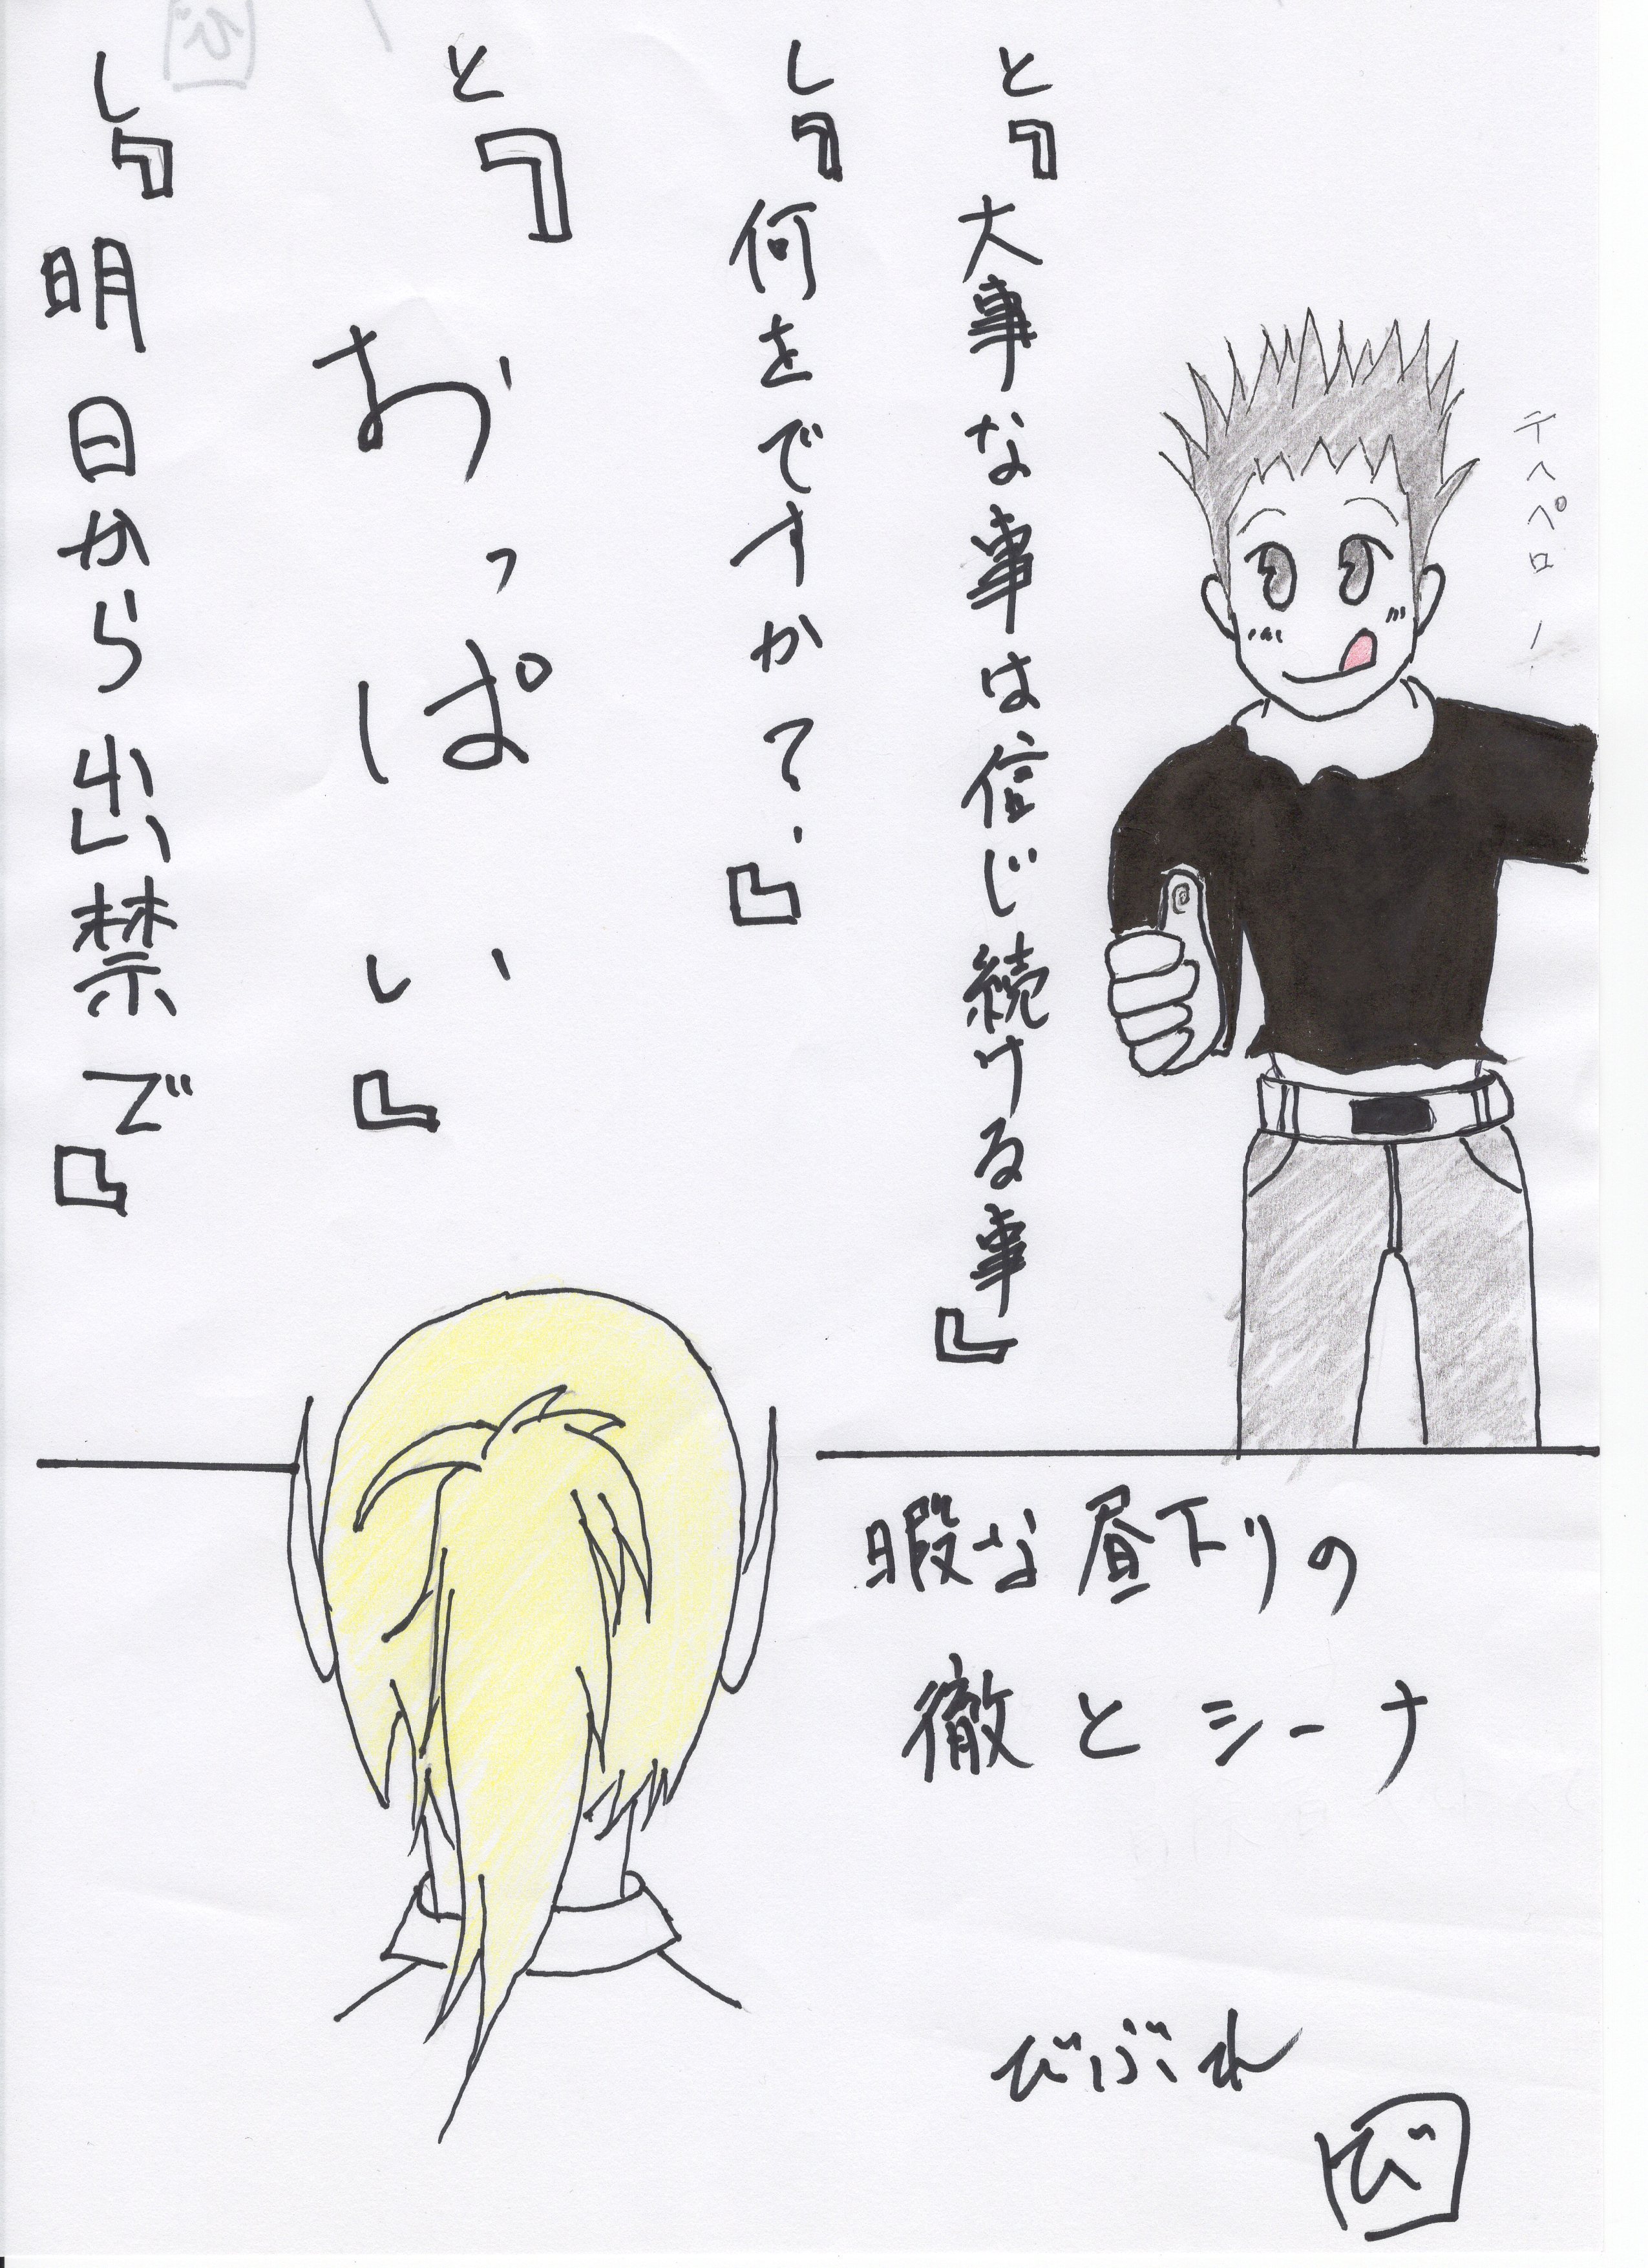 テヘペロ!
と『大事な事は信じ続ける事』
し『何をですか?』
と『おっぱい』
し『明日から出禁で』
暇な昼下りの
徹とシーナ
びぶれ
び